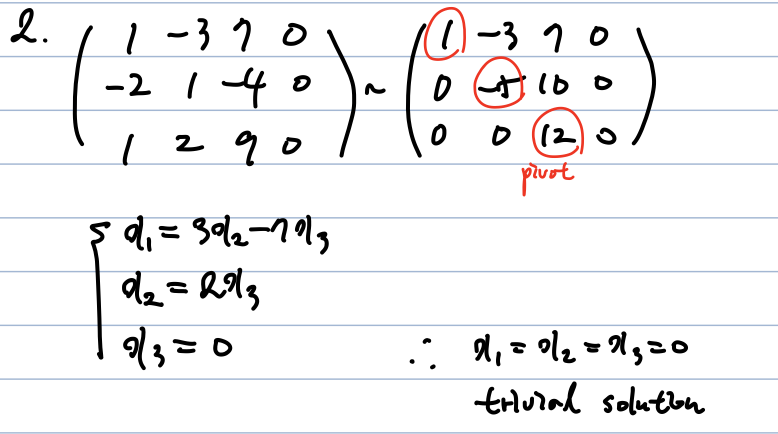 2. ( 1 -3 7 0 ) ~ ( 1 -3 7 0 )
( -2 1 -4 0 ) ( 0 -5 10 0 )
( 1 2 9 0 ) ( 0 0 12 0 )
pivot
{ x₁ = 3x₂ - 7x₃
x₂ = 2x₃
x₃ = 0 ∴ x₁ = x₂ = x₃ = 0
trivial solution